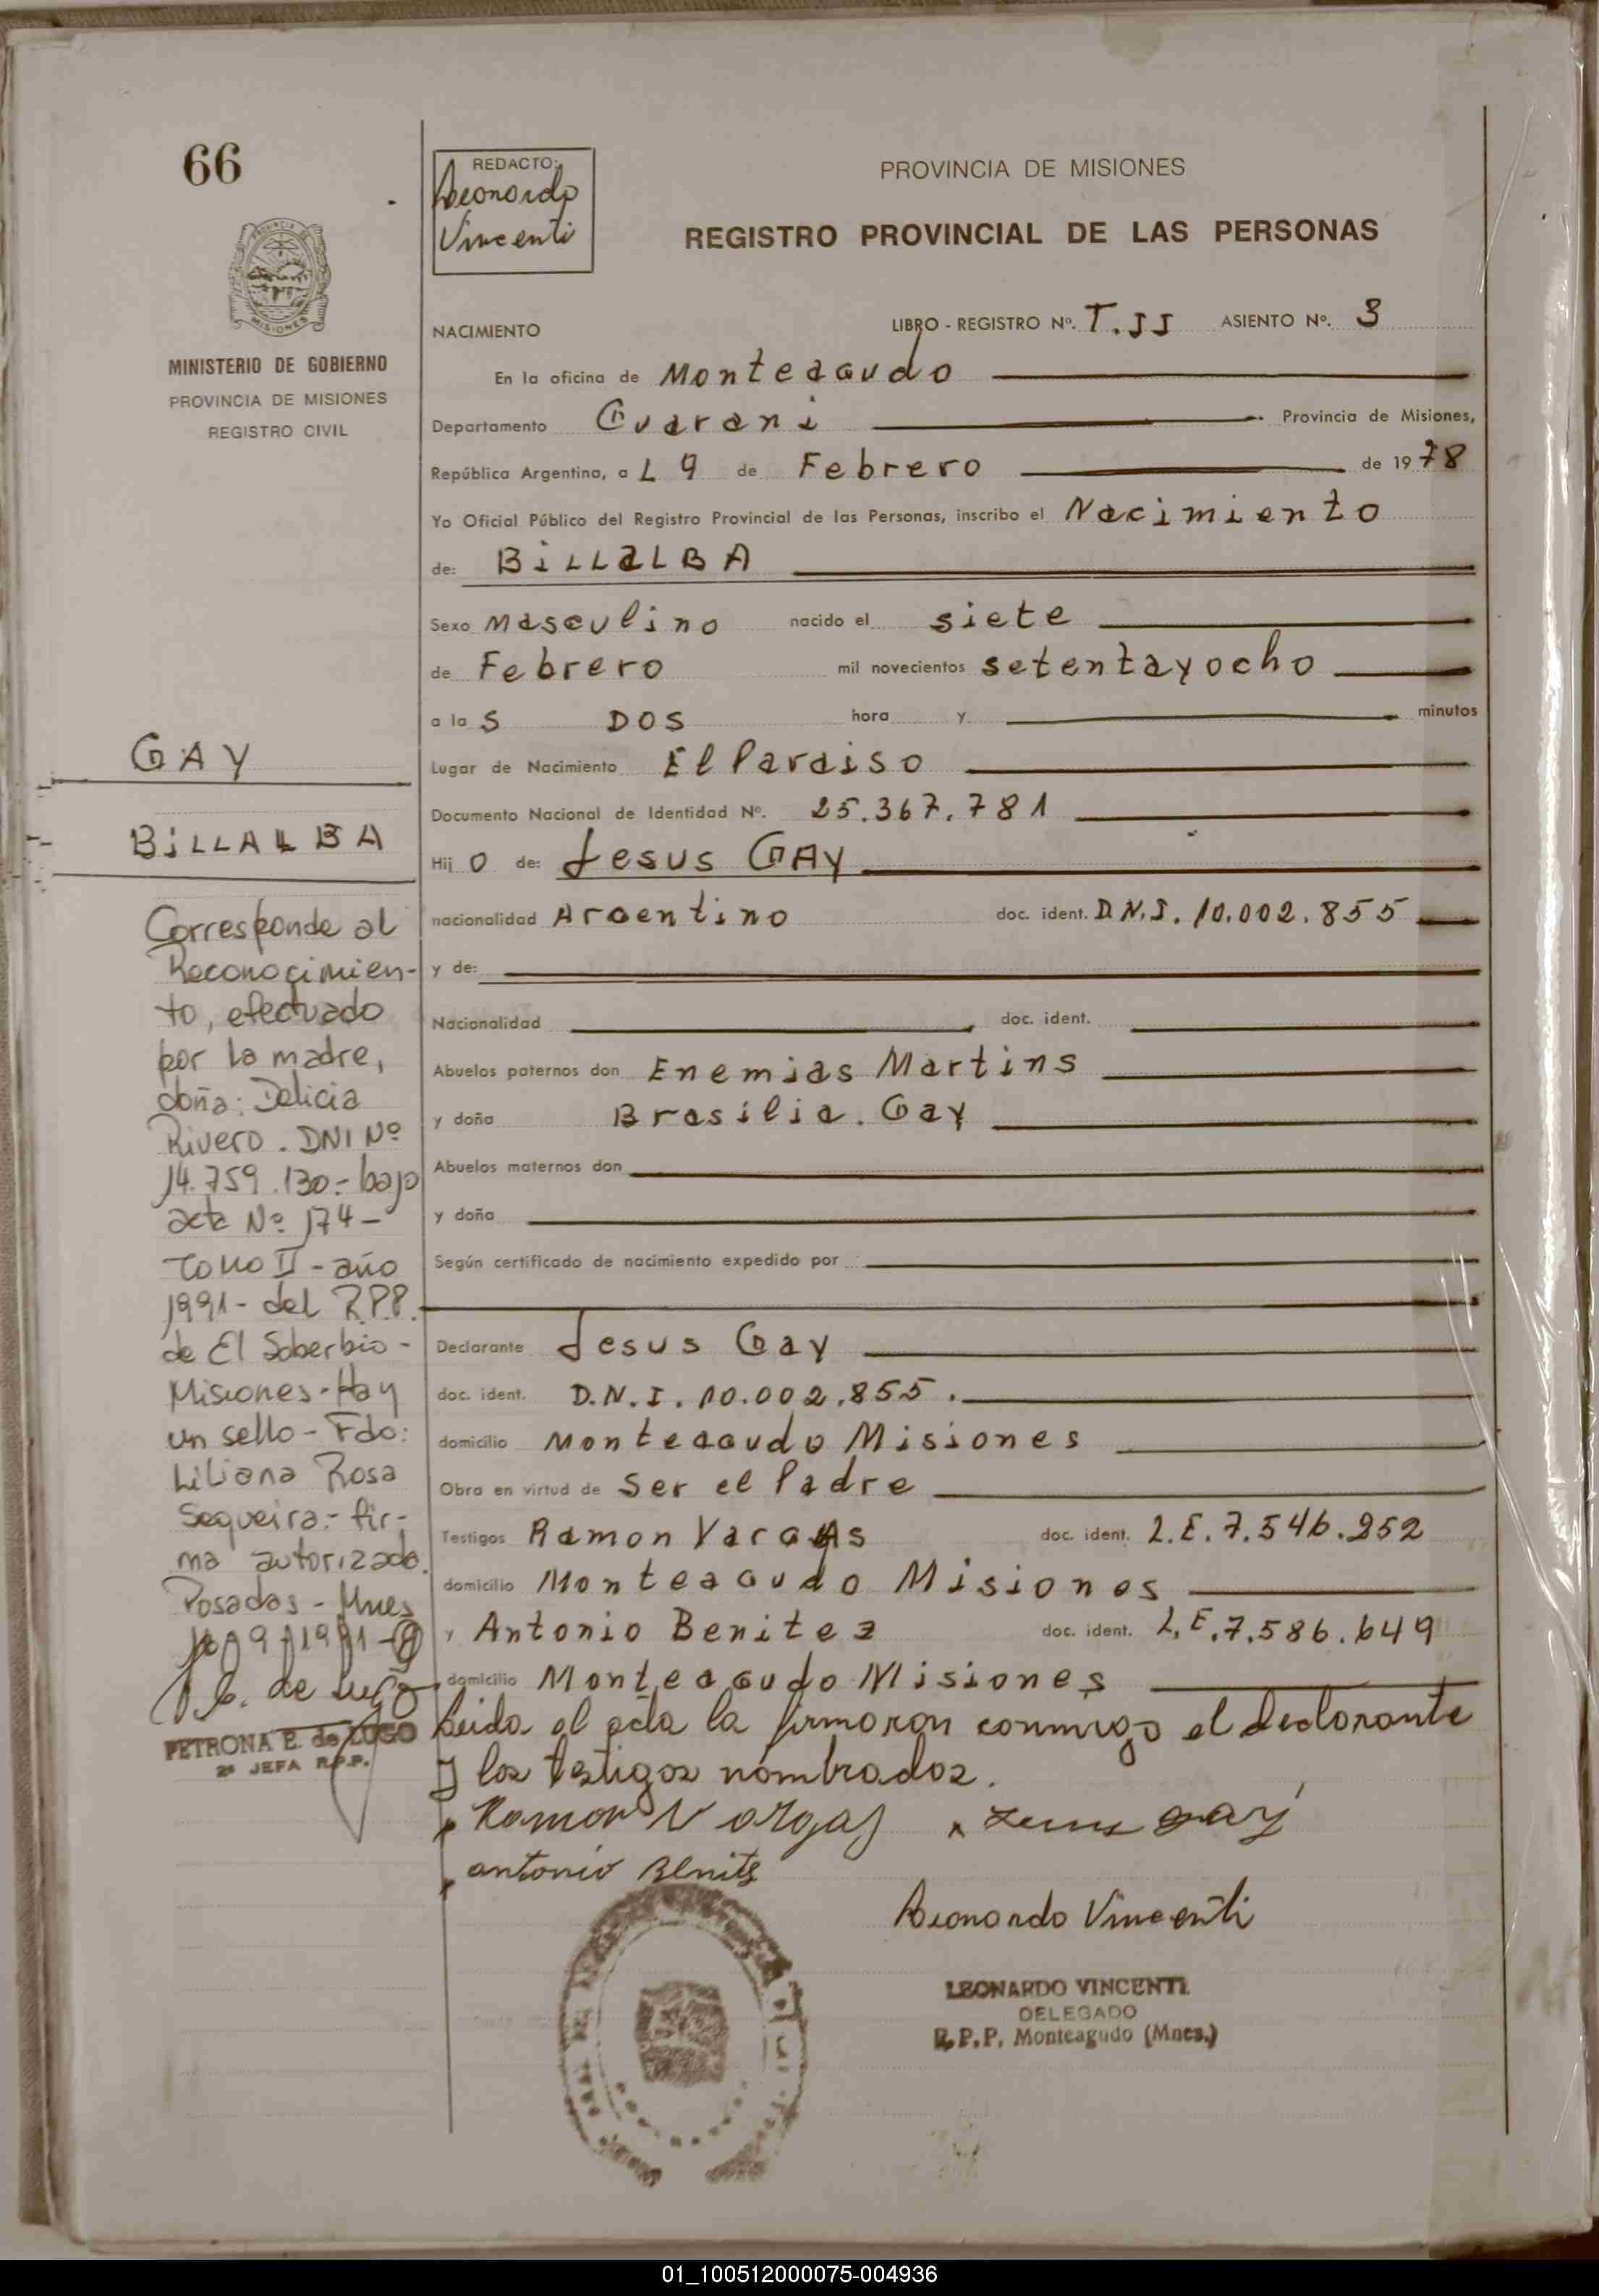 66
REDACTO:
Leonardo
Vincenti
PROVINCIA DE MISIONES
REGISTRO PROVINCIAL DE LAS PERSONAS
MISIONES
MINISTERIO DE GOBIERNO
PROVINCIA DE MISIONES
REGISTRO CIVIL
NACIMIENTO LIBRO - REGISTRO Nº. T. II ASIENTO Nº. 3
En la oficina de Monteagudo
Departamento Guarani Provincia de Misiones,
República Argentina, a L 9 de Febrero de 1978
Yo Oficial Público del Registro Provincial de las Personas, inscribo el Nacimiento
de: BiLLaLBA
Sexo Masculino nacido el siete
de Febrero mil novecientos setentayocho
a las DOS hora y minutos
Lugar de Nacimiento El Paraiso
Documento Nacional de Identidad Nº. 25.367.781
Hijo de: Jesus GAY
nacionalidad Argentino doc. ident. D.N.I. 10.002.855
y de:
Nacionalidad doc. ident.
Abuelos paternos don Enemias Martins
y doña Brasilia. Gay
Abuelos maternos don
y doña
Según certificado de nacimiento expedido por
Declarante Jesus Gay
doc. ident. D.N.I. 10.002.855.
domicilio Monteagudo Misiones
Obra en virtud de Ser el Padre
Testigos Ramon Vargas doc. ident. L.E. 7.546.252
domicilio Monteagudo Misiones
y Antonio Benitez doc. ident. L.E. 7.586.649
domicilio Monteagudo Misiones
Leida el acta la firmaron conmigo el declarante
y los testigos nombrados.
Ramon Vargas gay
antonio Benites
Leonardo Vincenti
LEONARDO VINCENTI
DELEGADO
R.P.P. Monteagudo (Mnes.)
GAY
BiLLALBA
Corresponde al
Reconocimien-
to, efectuado
por la madre,
doña: Delicia
Rivero. DNI Nº
14.759.130.- bajo
acta Nº 174-
Tomo II - año
1991- del R.P.P.
de El Soberbio-
Misiones-Hay
un sello- Fdo:
Liliana Rosa
Sequeira.- fir-
ma autorizada.
Posadas - Mnes
de Lugo
PETRONA E. de LUGO
2ª JEFA R.P.P.
01_100512000075-004936